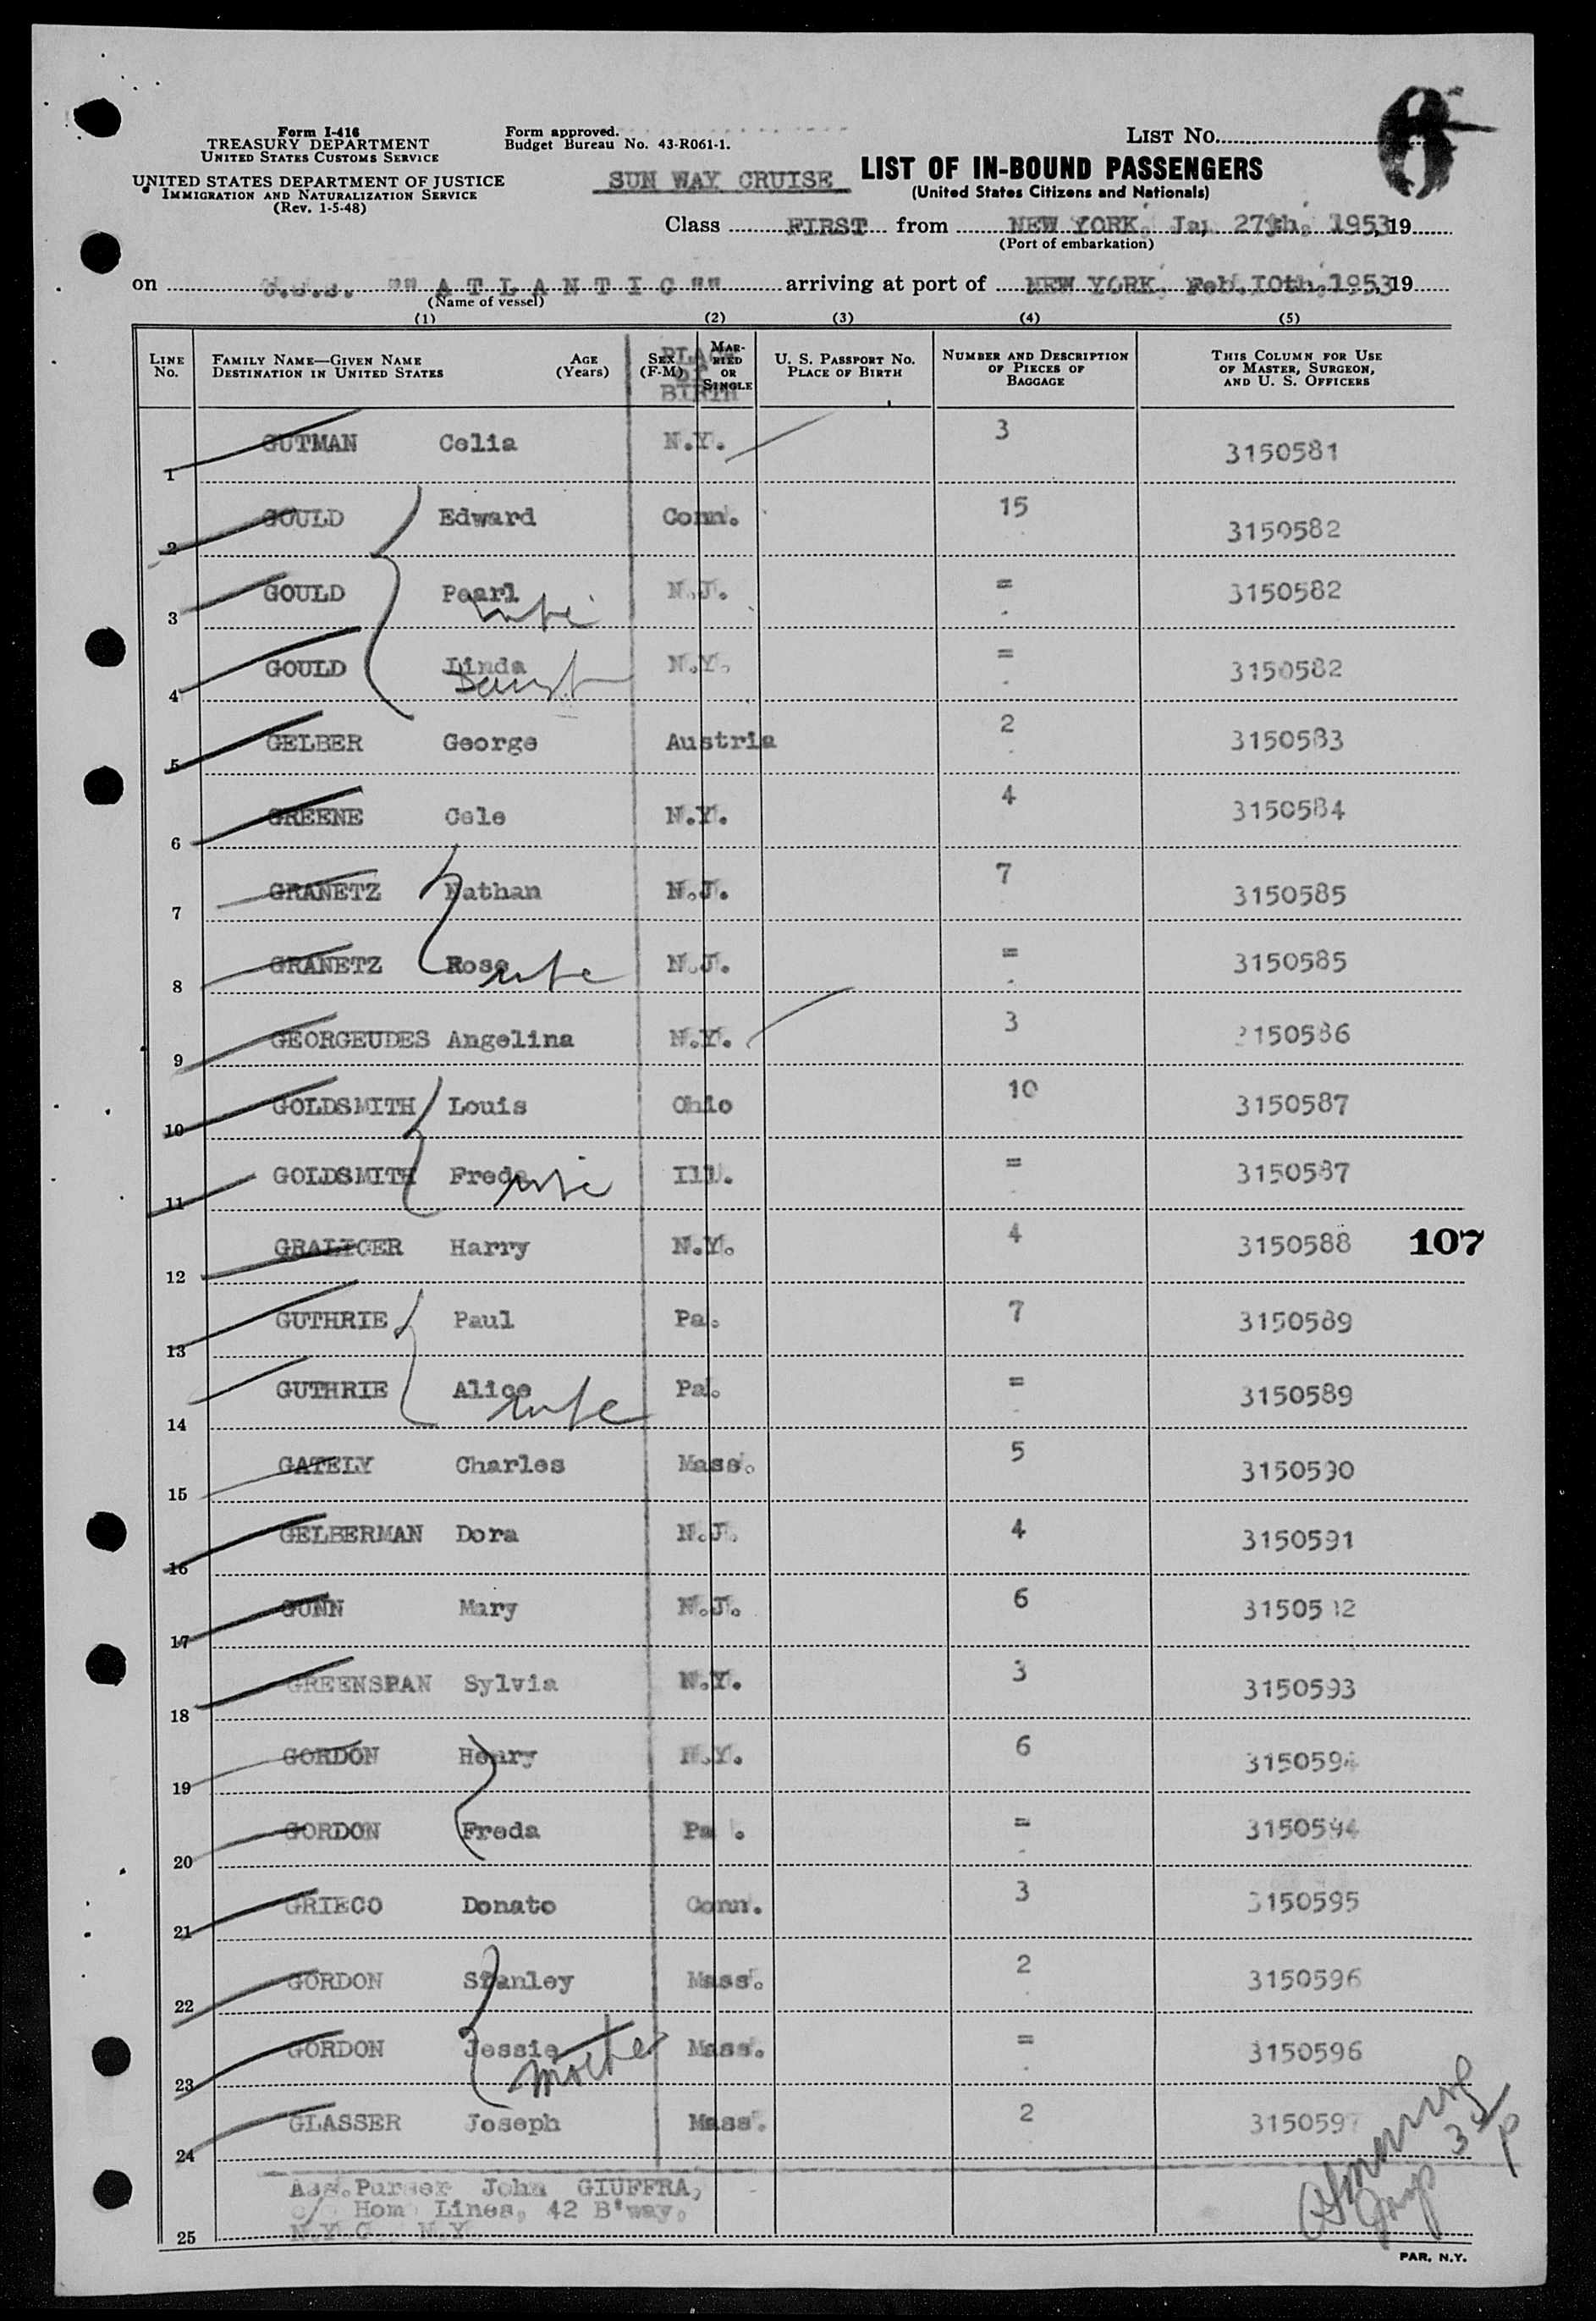 Form I-416
TREASURY DEPARTMENT
UNITED STATES CUSTOMS SERVICE
UNITED STATES DEPARTMENT OF JUSTICE
IMMIGRATION AND NATURALIZATION SERVICE
(Rev. 1-5-48)
Form approved.
Budget Bureau No. 43-R061-1.
LIST NO. 6
SUN WAY CRUISE LIST OF IN-BOUND PASSENGERS
(United States Citizens and Nationals)
Class FIRST from NEW YORK, Ja, 27th, 1953, 19
(Port of embarkation)
on "" A T L A N T I C "" arriving at port of NEW YORK, Feb. 10th, 1953, 19
(Name of vessel)
(1) (2) (3) (4) (5)
LINE NO. FAMILY NAME—GIVEN NAME DESTINATION IN UNITED STATES AGE (Years) SEX (F-M) MARRIED OR SINGLE U. S. PASSPORT NO. PLACE OF BIRTH NUMBER AND DESCRIPTION OF PIECES OF BAGGAGE THIS COLUMN FOR USE OF MASTER, SURGEON, AND U. S. OFFICERS
PLACE OF BIRTH
1 GUTMAN Celia N.Y. 3 3150581
2 GOULD Edward Conn. 15 3150582
3 GOULD Pearl wife N.J. = 3150582
4 GOULD Linda Daught N.Y. = 3150582
5 GELBER George Austria 2 3150583
6 GREENE Cele N.Y. 4 3150584
7 GRANETZ Nathan N.J. 7 3150585
8 GRANETZ Rose wife N.J. = 3150585
9 GEORGEUDES Angelina N.Y. 3 3150586
10 GOLDSMITH Louis Ohio 10 3150587
11 GOLDSMITH Freda wife Ill. = 3150587
12 GRALICER Harry N.Y. 4 3150588 107
13 GUTHRIE Paul Pa. 7 3150589
14 GUTHRIE Alice wife Pa. = 3150589
15 GATELY Charles Mass. 5 3150590
16 GELBERMAN Dora N.J. 4 3150591
17 GUNN Mary N.J. 6 3150592
18 GREENSPAN Sylvia N.Y. 3 3150593
19 GORDON Henry N.Y. 6 3150594
20 GORDON Freda Pa . = 3150594
21 GRIECO Donato Conn. 3 3150595
22 GORDON Stanley Mass. 2 3150596
23 GORDON Jessie mother Mass. = 3150596
24 GLASSER Joseph Mass. 2 3150597
Ass.Purser John GIUFFRA,
c/o Hom Lines, 42 B'way,
25 N.Y.C. N.Y.
PAR, N.Y.